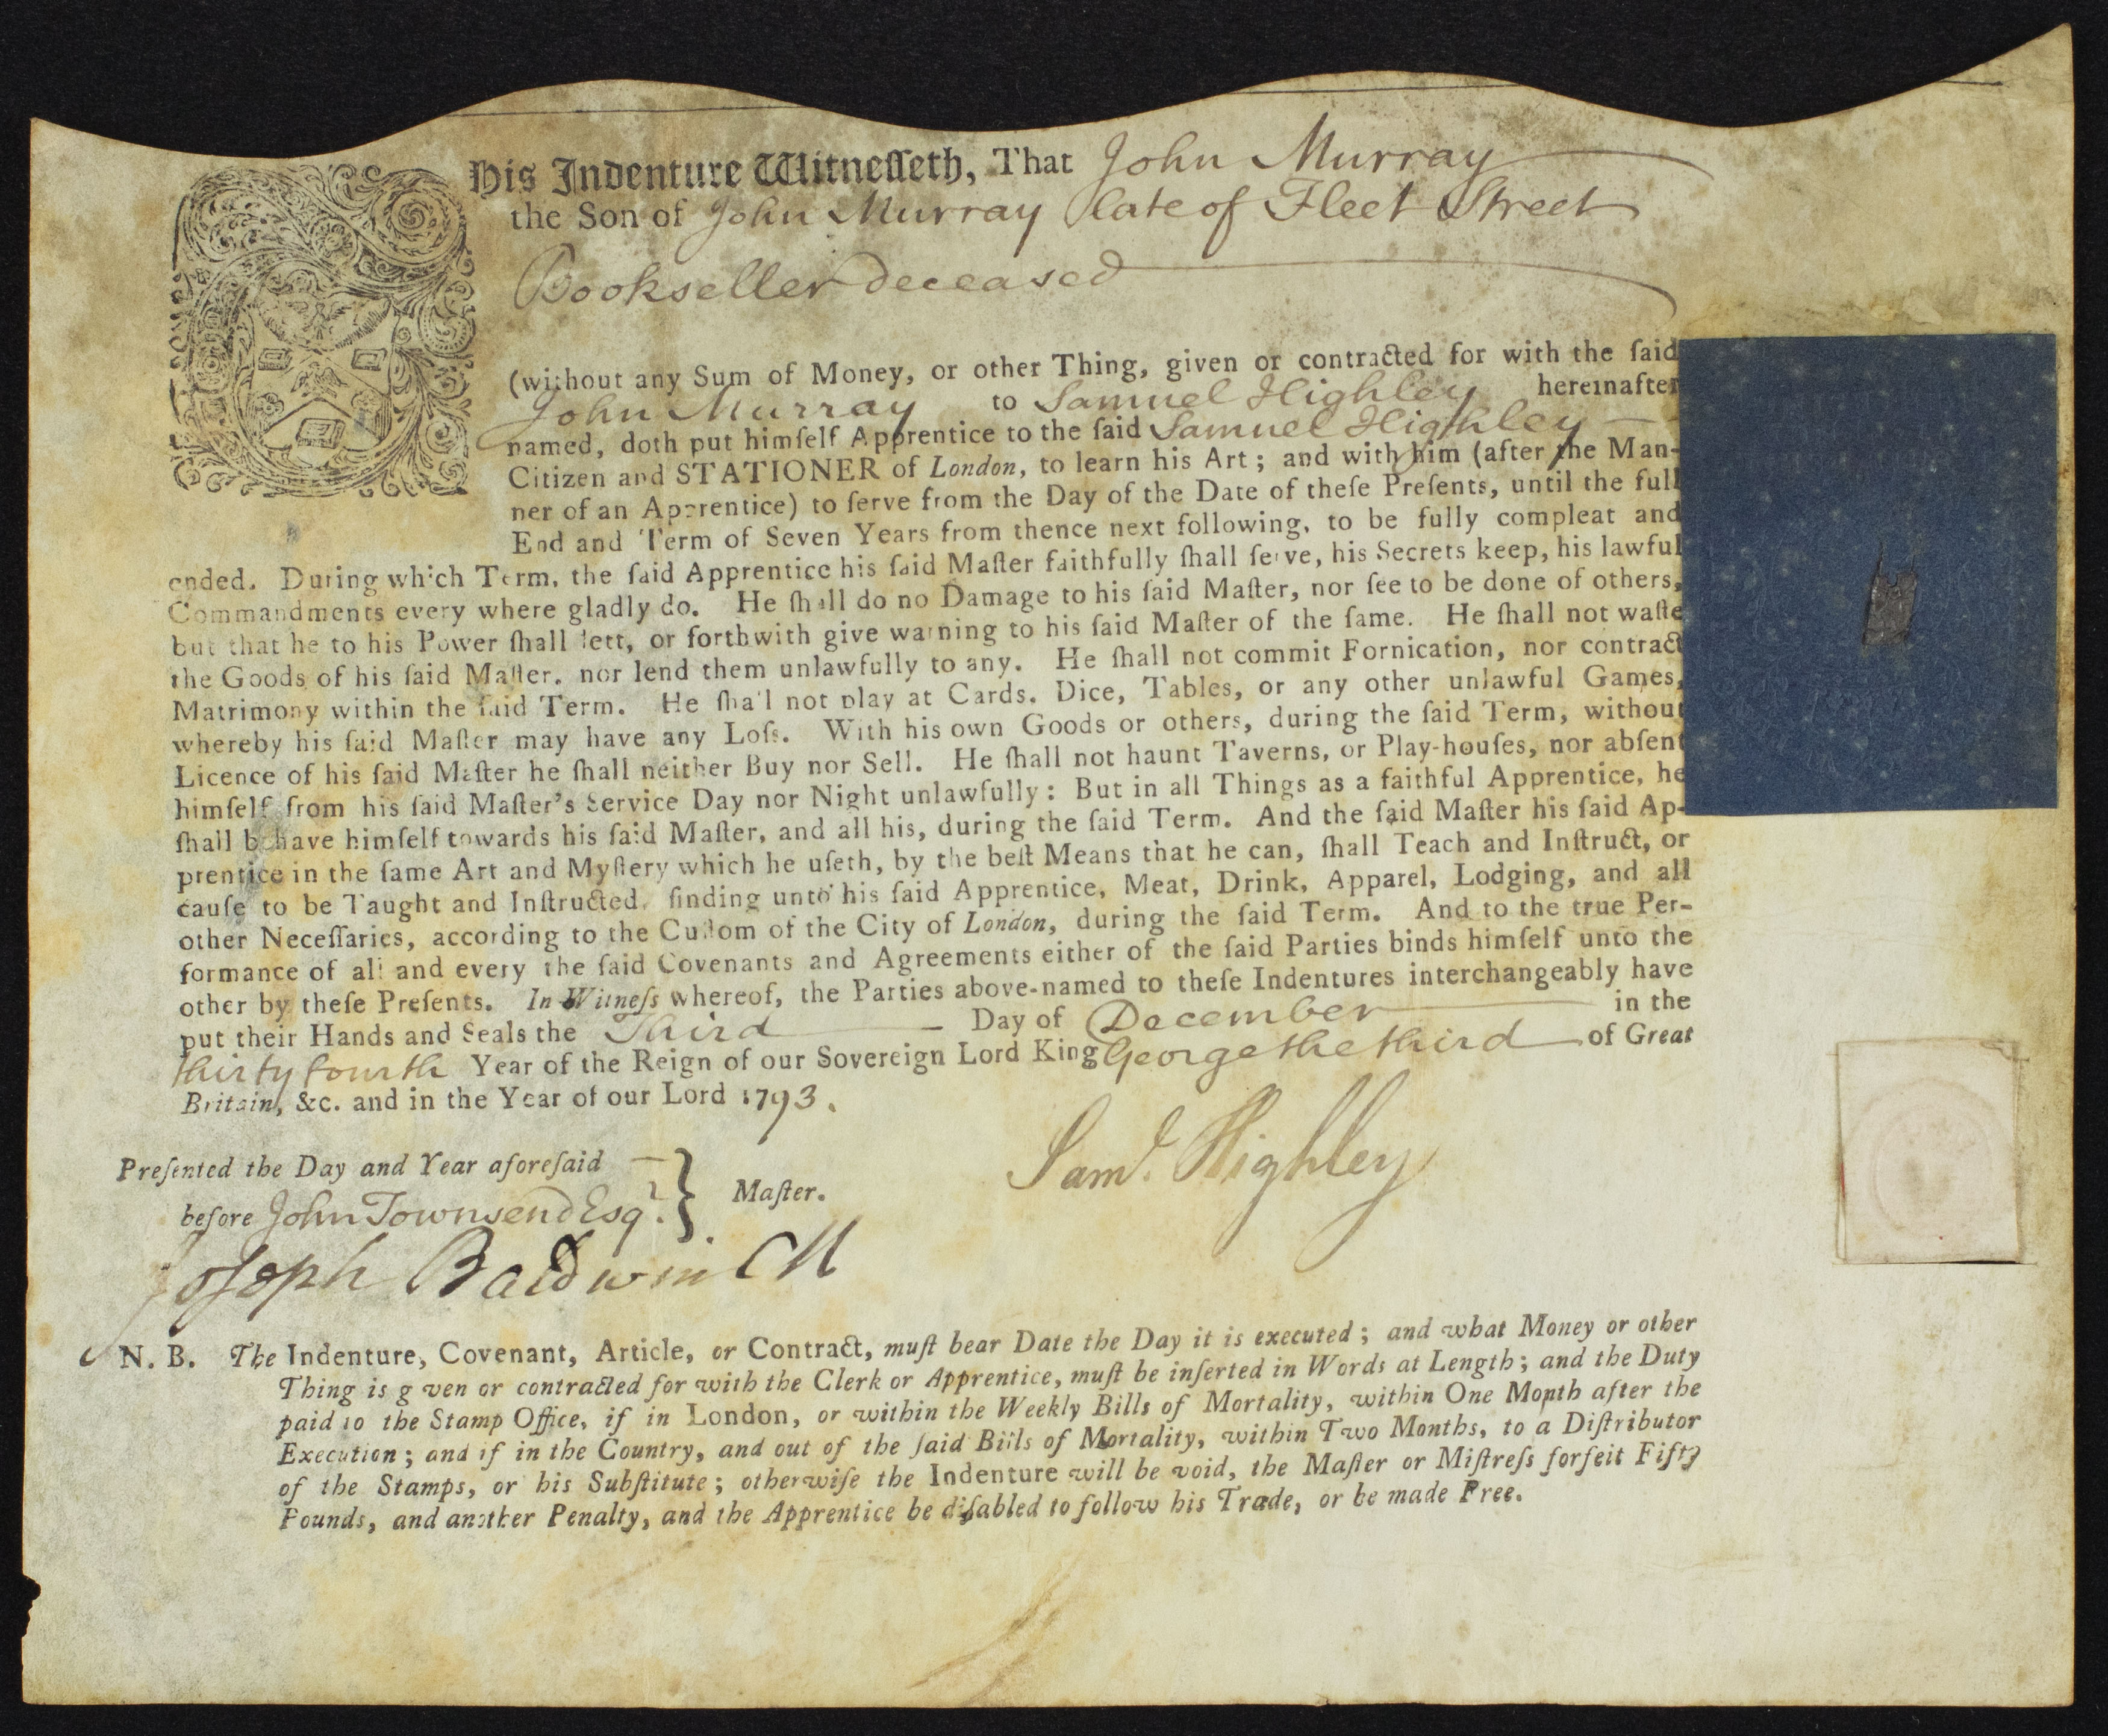 This Indenture Witneſſeth, That John Murray
the Son of John Murray late of Fleet Street
Bookseller deceased
(without any Sum of Money, or other Thing, given or contracted for with the ſaid
John Murray to Samuel Highley hereinafter
named, doth put himſelf Apprentice to the ſaid Samuel Highley
Citizen and STATIONER of London, to learn his Art; and with him (after the Man-
ner of an Apprentice) to ſerve from the Day of the Date of theſe Preſents, until the full
End and Term of Seven Years from thence next following, to be fully compleat and
ended. During which Term, the ſaid Apprentice his ſaid Maſter faithfully ſhall ſerve, his Secrets keep, his lawful
Commandments every where gladly do. He ſhall do no Damage to his ſaid Maſter, nor ſee to be done of others,
but that he to his Power ſhall lett, or forthwith give warning to his ſaid Maſter of the ſame. He ſhall not waſte
the Goods of his ſaid Maſter, nor lend them unlawfully to any. He ſhall not commit Fornication, nor contract
Matrimony within the ſaid Term. He ſhall not play at Cards, Dice, Tables, or any other unlawful Games,
whereby his ſaid Maſter may have any Loſs. With his own Goods or others, during the ſaid Term, without
Licence of his ſaid Maſter he ſhall neither Buy nor Sell. He ſhall not haunt Taverns, or Play-houſes, nor abſent
himſelf from his ſaid Maſter's Service Day nor Night unlawfully: But in all Things as a faithful Apprentice, he
ſhall behave himſelf towards his ſaid Maſter, and all his, during the ſaid Term. And the ſaid Maſter his ſaid Ap-
prentice in the ſame Art and Myſtery which he uſeth, by the beſt Means that he can, ſhall Teach and Inſtruct, or
cauſe to be Taught and Inſtructed, finding unto his ſaid Apprentice, Meat, Drink, Apparel, Lodging, and all
other Neceſſaries, according to the Cuſtom of the City of London, during the ſaid Term. And to the true Per-
formance of all and every the ſaid Covenants and Agreements either of the ſaid Parties binds himſelf unto the
other by theſe Preſents. In Witneſs whereof, the Parties above-named to theſe Indentures interchangeably have
put their Hands and Seals the Third Day of December in the
thirty fourth Year of the Reign of our Sovereign Lord King George the third of Great
Britain, &c. and in the Year of our Lord 1793.
Preſented the Day and Year aforeſaid
before John Townsend Esqr. } Maſter.
Saml. Highley
Joſeph Baldwin Cll
N. B. The Indenture, Covenant, Article, or Contract, muſt bear Date the Day it is executed; and what Money or other
Thing is given or contracted for with the Clerk or Apprentice, muſt be inſerted in Words at Length; and the Duty
paid to the Stamp Office, if in London, or within the Weekly Bills of Mortality, within One Month after the
Execution; and if in the Country, and out of the ſaid Bills of Mortality, within Two Months, to a Diſtributor
of the Stamps, or his Subſtitute; otherwiſe the Indenture will be void, the Maſter or Miſtreſs forfeit Fifty
Pounds, and another Penalty, and the Apprentice be diſabled to follow his Trade, or be made Free.